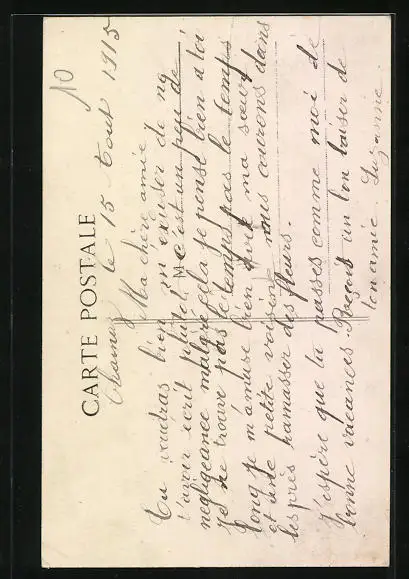 10
CARTE POSTALE
Chamoy le 15 Aout 1915
Ma chère amie
Tu voudras bien m'excuser de ne
t'avoir écrit plutôt, c'est un peu de
négligeance malgré cela je pense bien a toi
je ne trouve pas le temps pas le temps
long je m'amuse bien avec ma sœur
et une petite voisine nous courons dans
les pres ramasser des fleurs.
J'espère que tu passes comme moi de
bonne vacances. Reçois un bon baiser de
ton amie. Suzanne